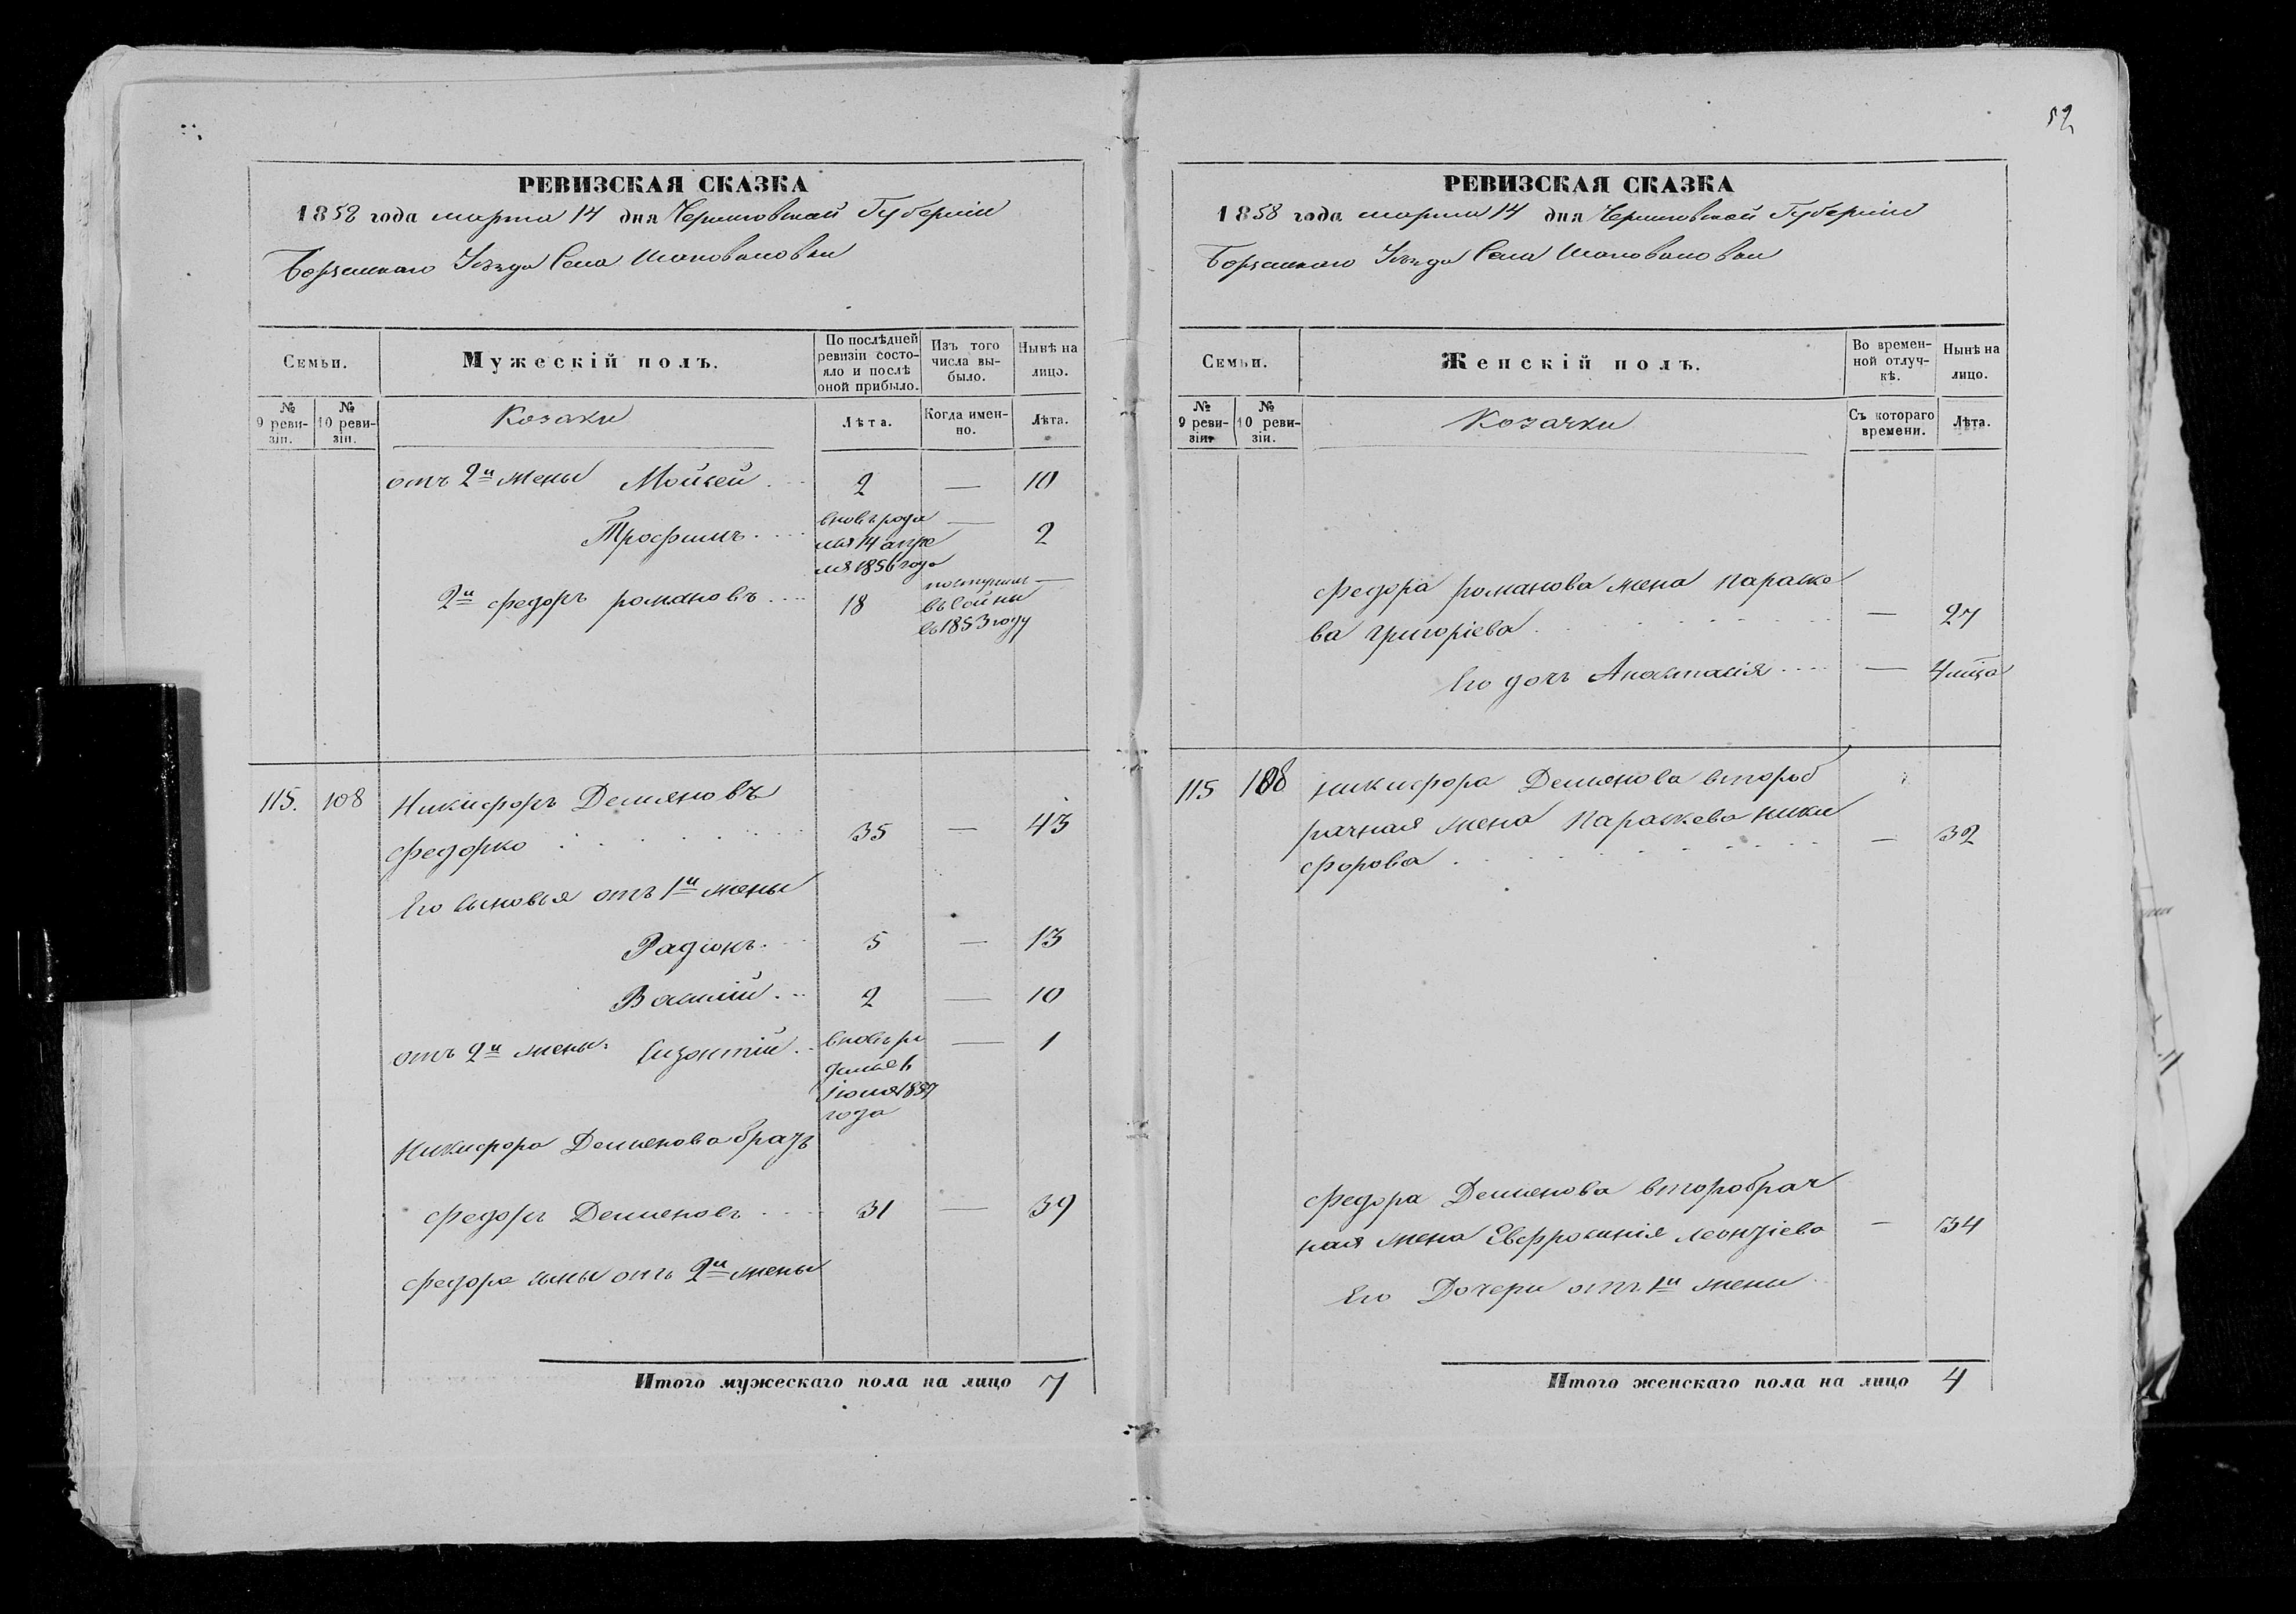 52
РЕВИЗСКАЯ СКАЗКА
1858 года марта 14 дня Черниговской Губерніи
Борзенскаго Уѣзда Села Шаповаловки
Семьи.
Мужескій полъ.
По послѣдней ревизіи состояло и послѣ оной прибыло.
Изъ того числа выбыло.
Нынѣ на лицо.
№ 9 ревизіи.
№ 10 ревизіи.
Козаки
Лѣта.
Когда именно.
Лѣта.
отъ 2й жены Мойсей 2 — 10
Трофимъ вновь роди — 2
лся 14 апре
ля 1856 года
2й федоръ романовъ 18 поступилъ —
въ
въ 1853 году
115. 108 Никифоръ Демяновъ
федорко 35 — 43
Его сыновья отъ 1й жены
Радіонъ 5 — 13
Василій 2 — 10
отъ 2й жены вновь ро — 1
дился 6
Іюня 1857
года
Никифора Демянова братъ
федоръ Демяновъ 31 — 39
федора сыны отъ 2й жены
Итого мужескаго пола на лицо 7
РЕВИЗСКАЯ СКАЗКА
1858 года марта 14 дня Черниговской Губерніи
Борзенскаго Уѣзда Села Шаповаловки
Семьи.
Женскій полъ.
Во временной отлучкѣ.
Нынѣ на лицо.
№ 9 ревизіи.
№ 10 ревизіи.
Козачки
Съ котораго времени.
Лѣта.
федора романова жена параске
ва григоріева — 27
Его дочь Анастасія — 4
115 108 никифора Демянова второб
рачная жена Параскева ники
форова — 32
федора Демянова второбрач
ная жена Евфросинія леонтіева — 34
Его Дочери отъ 1й жены
Итого женскаго пола на лицо 4